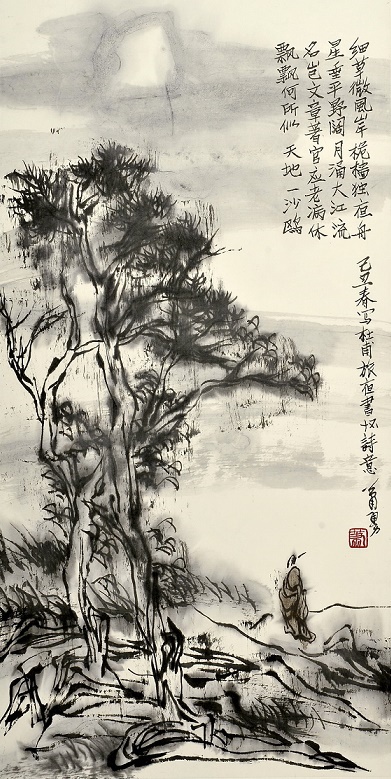 细草微風岸 桅檣独夜舟
星垂平野闊 月涌大江流
名岂文章著 官应老病休
飄飄何所似 天地一沙鷗
己丑春写杜甫旅夜書怀詩意 勇